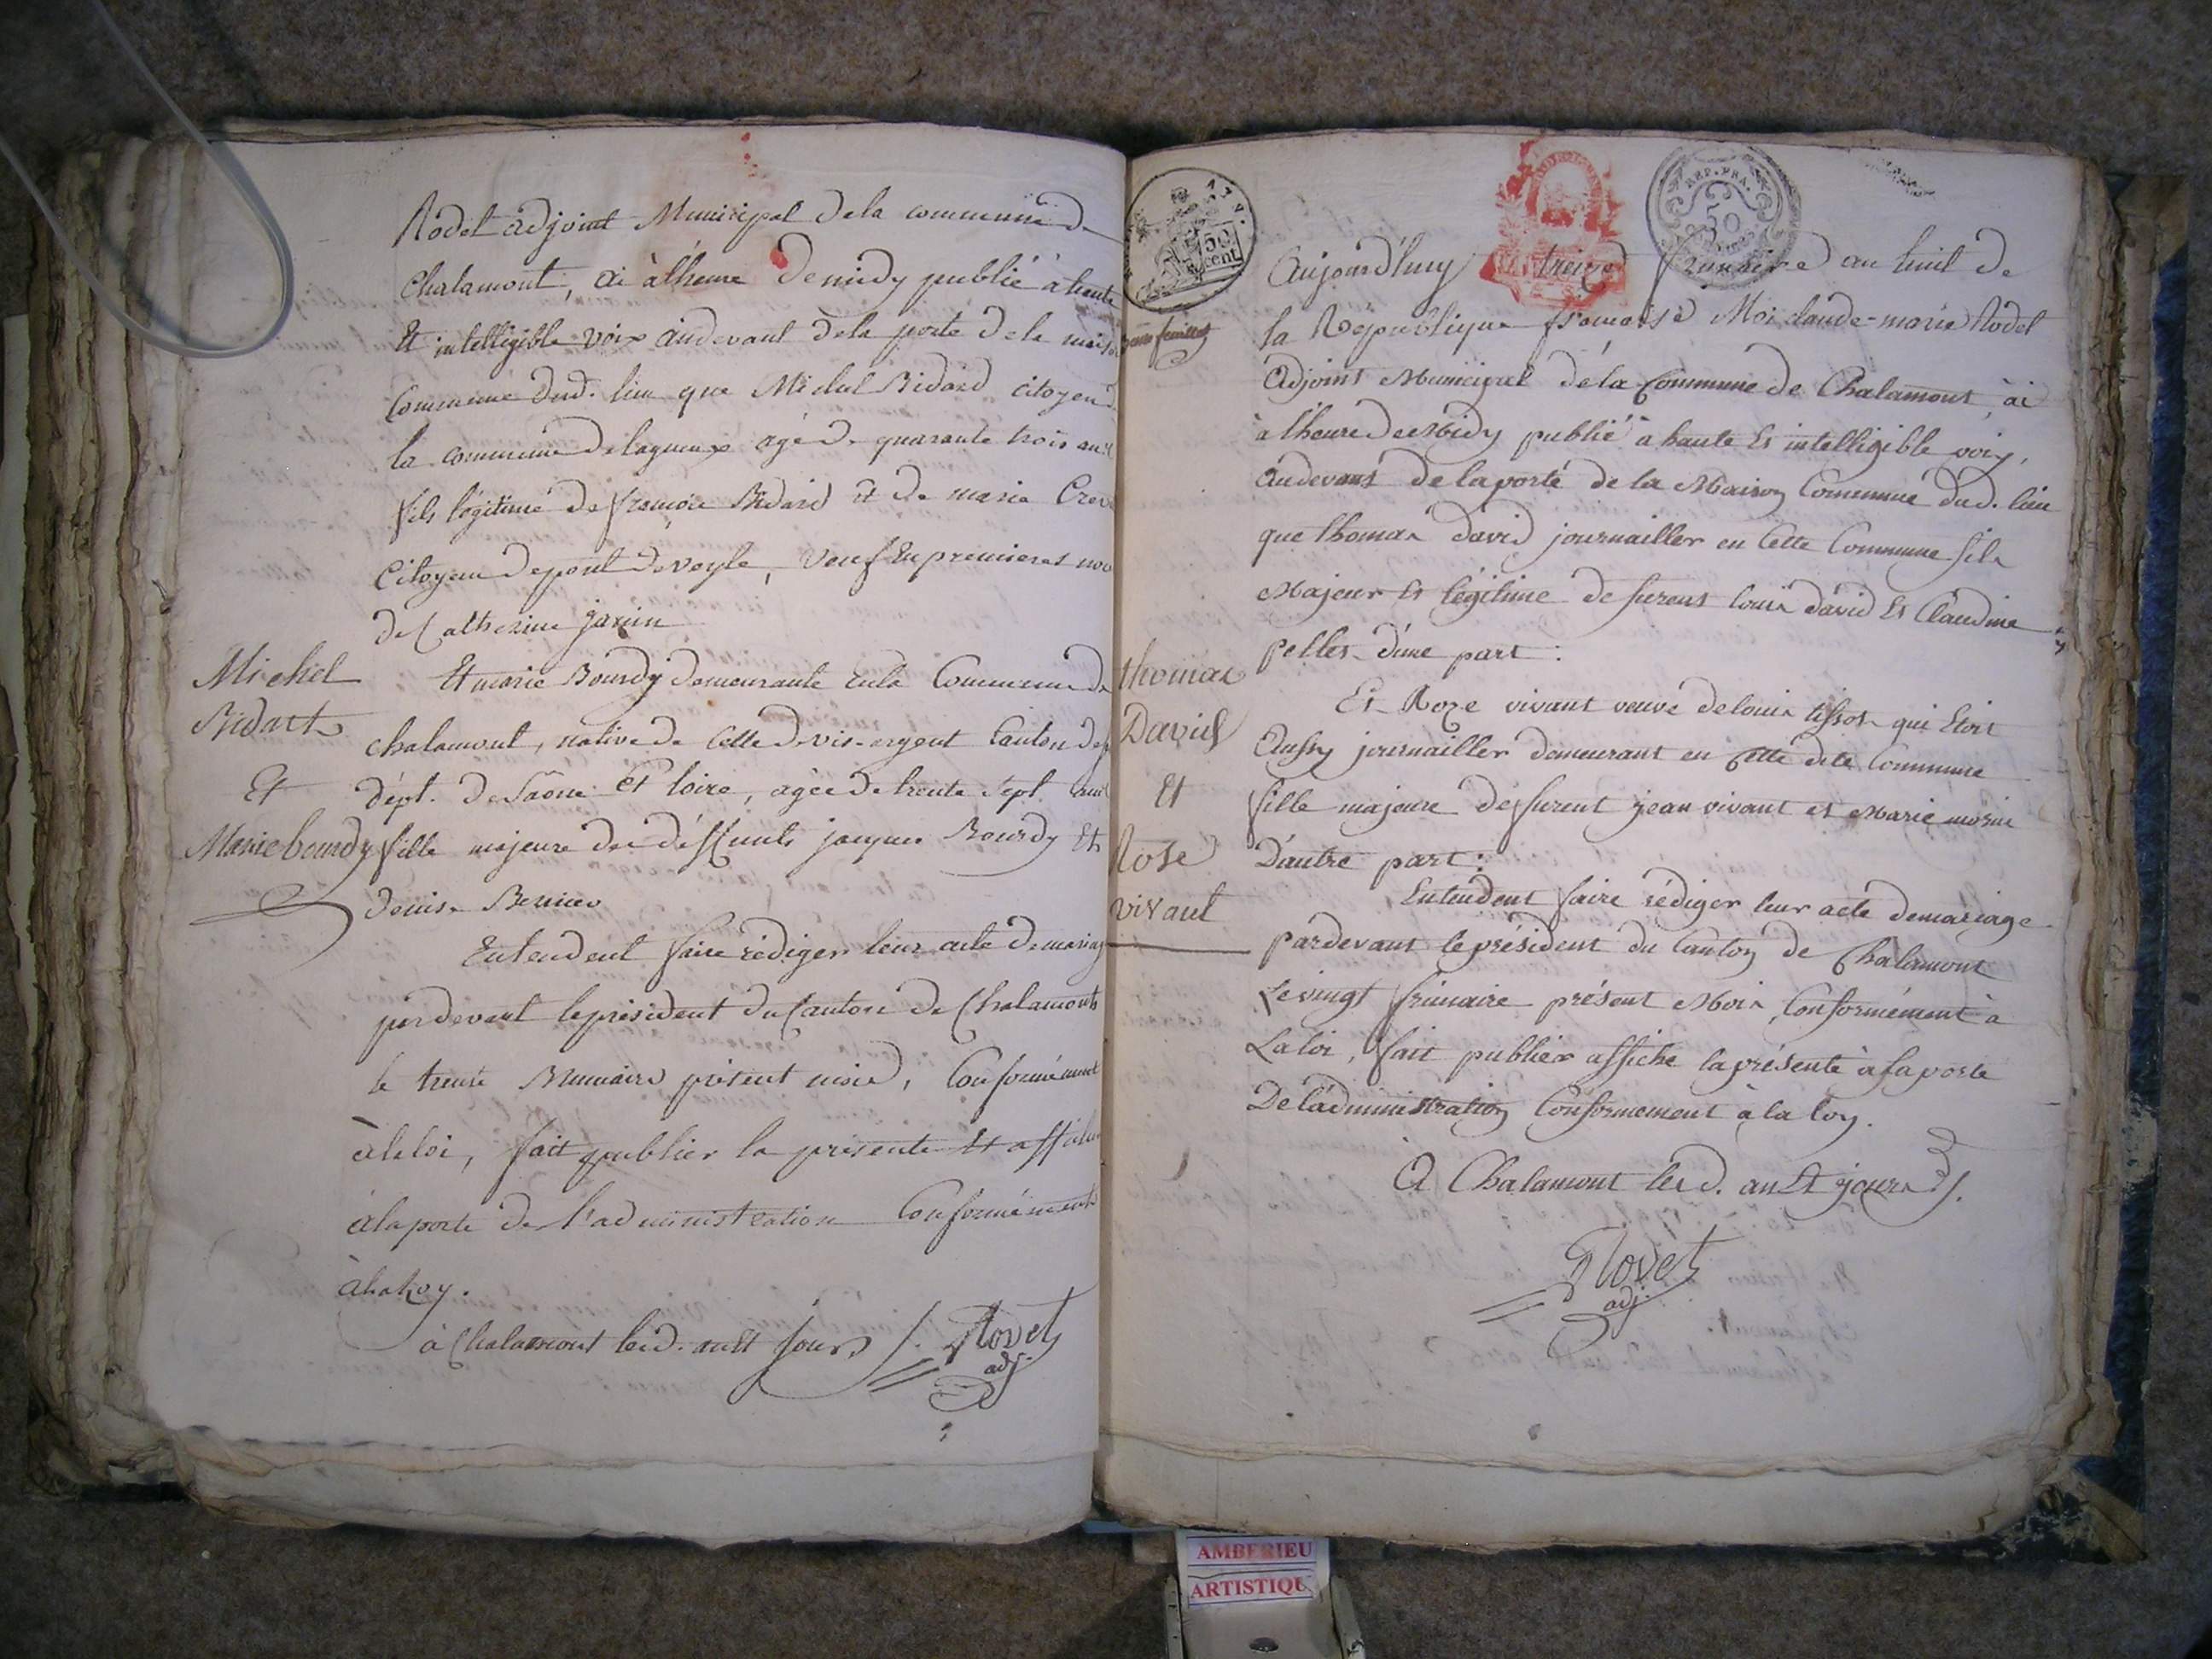 Rodet adjoint Municipal de la commune de
chalamont, ai à l'heure de midy publié à haute
Et intelligible voix audevant de la porte de la maison
Commune dud. lieu que Michel Bidard citoyen de
la commune de lagnieux agé de quarante trois ans
fils légitime de françois Bidard et de marie
Citoyen de pont de veyle, veuf En premieres
de Catherine janin
Michel
Bidart
Et
Marie bourdy
Et marie Bourdy demeurante en la Commune de
chalamont, native de celle de vis-argent Canton de
dépt. de Saône et loire, agée de trente sept ans
fille majeure de déffunts jacques Bourdy Et
denise
Entendent faire rédiger leur acte de mariage
pardevant le président du Canton de Chalamont
le trente présent mois, Conformément
à la loi, fait publier la présente Et afficher
à la porte de l'administration Conformément
à la Loy.
à Chalamont led. an Et jour /. Rodet
adj.
REP. FRA.
50
50
cent
feuillet
Aujourd'huy treize frimaire an huit de
la République française Moi claude-marie Rodet
Adjoint Municipal dela Commune de Chalamont, ai
à l'heure de Midy publié à haute Et intelligible voix,
Audevant de la porte de la Maison Commune dud. lieu
que thomas david journailler en Cette Commune fils
Majeur Et légitime de furent louis david Et Claudine
pelles d'une part :
thomas
David
Et
Rose
vivant
Et Roze vivant veuve de louis tissot qui Etoit
Aussy journailler demeurant en Cette dite Commune
fille majeure de furent jean vivant et Marie morin
D'autre part :
Entendent faire rédiger leur acte de mariage
pardevant le président du Canton de Chalamont
Le vingt frimaire présent Mois, Conformément à
La loi, fait publier affiche la présente à la porte
De l'administration Conformement à la loy.
A Chalamont led. an Et jour /.
Rodet
adj.
AMBERIEU
ARTISTIQU